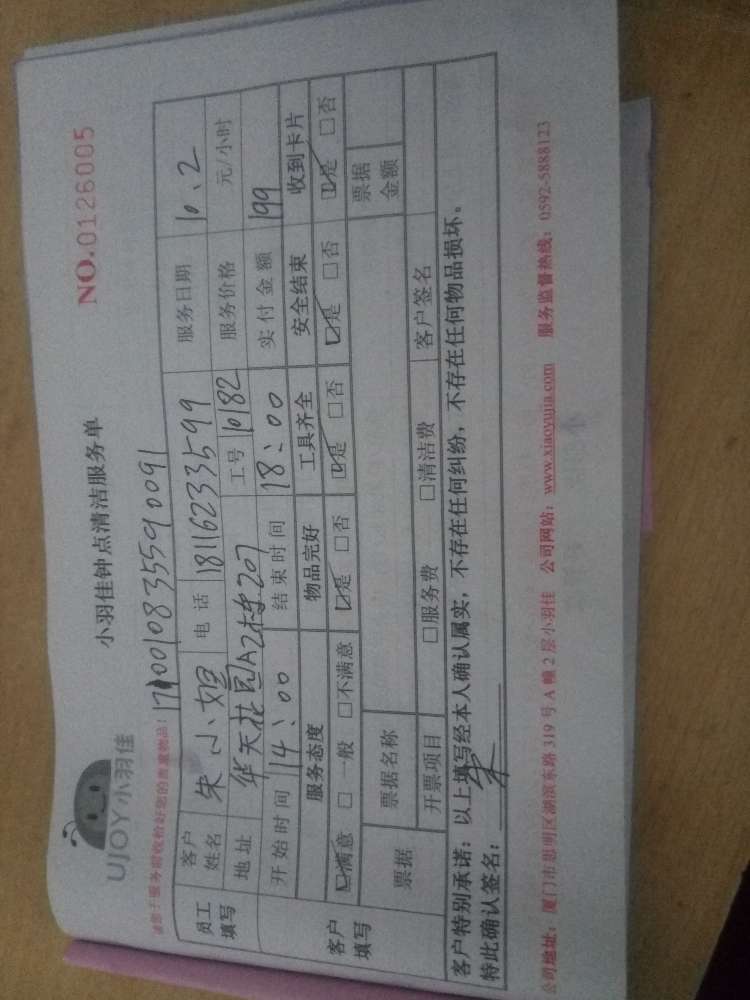 UJOY小羽佳
小羽佳钟点清洁服务单
NO.0126005
请您于服务前收检好您的贵重物品!
170010835590091
员工填写
客户姓名 朱小姐 电话 18116233599 服务日期 10.2
地址 华天花园A2栋207 工号 10182 服务价格 元/小时
开始时间 14:00 结束时间 18:00 实付金额 199
客户填写
服务态度 物品完好 工具齐全 安全结束 收到卡片
☑满意 □一般 □不满意 ☑是 □否 ☑是 □否 ☑是 □否 ☑是 □否
票据 票据名称 票据金额
开票项目 □服务费 □清洁费 客户签名
客户特别承诺:以上填写经本人确认属实,不存在任何纠纷,不存在任何物品损坏。
特此确认签名:朱
公司地址:厦门市思明区湖滨东路319号A幢2层小羽佳 公司网站:www.xiaoyujia.com 服务监督热线:0592-5888123